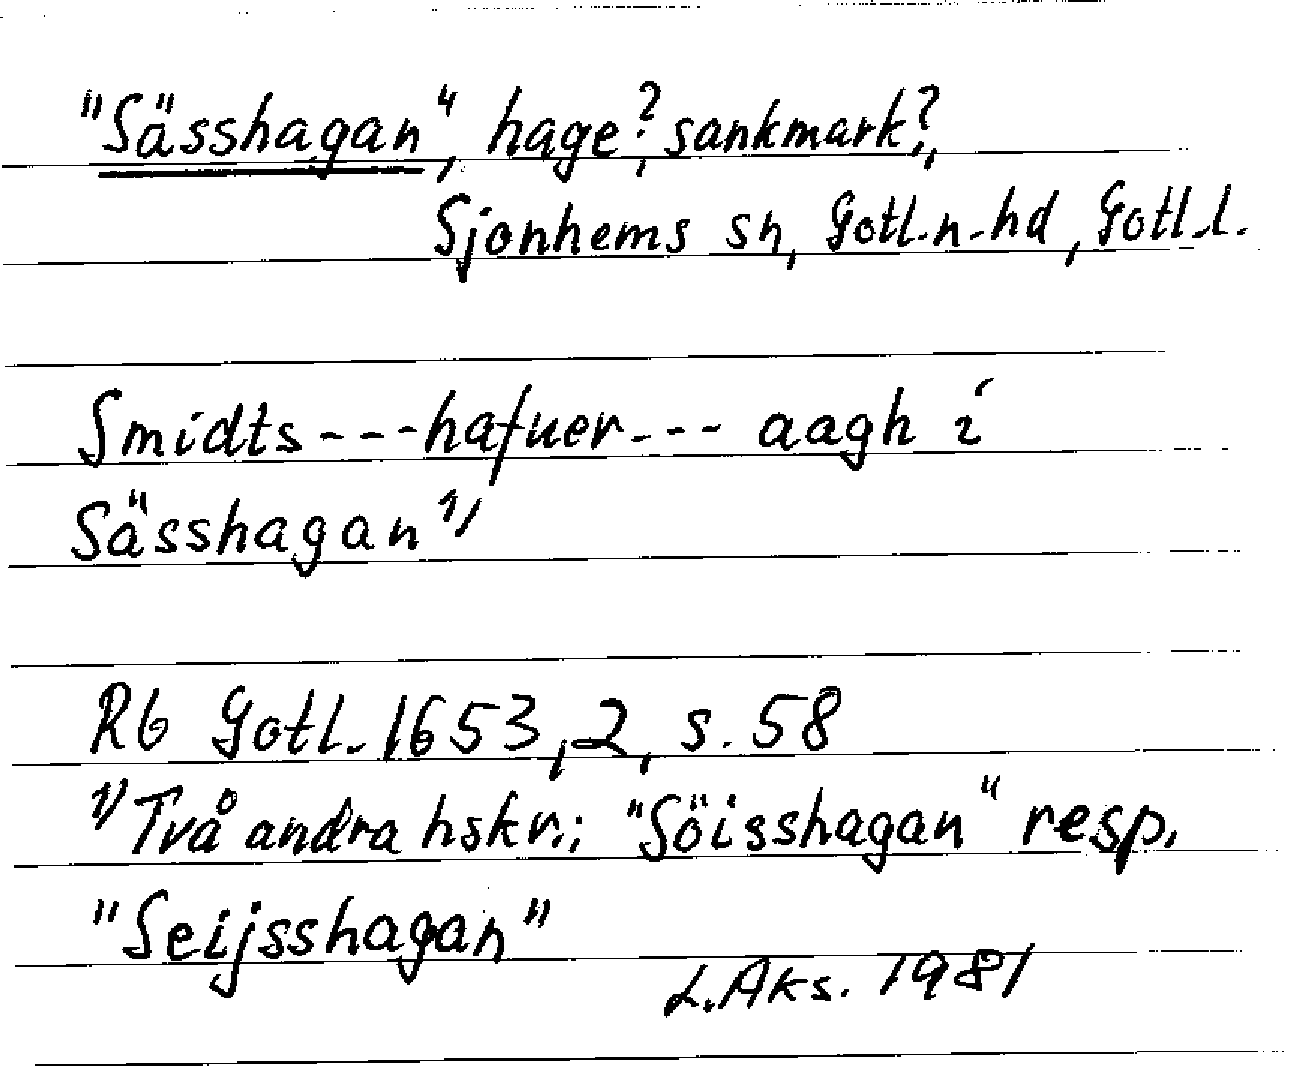 "Sässhagan", hage?, sankmark?,
Sjonhems sn, Gotl.n.hd, Gotl.l.
Smidts---hafuer--- aagh i
Sässhagan 1)
Rb Gotl. 1653,2, s. 58
1) Två andra hskr.: "Söisshagan" resp.
"Seijsshagan"
L.Aks. 1981